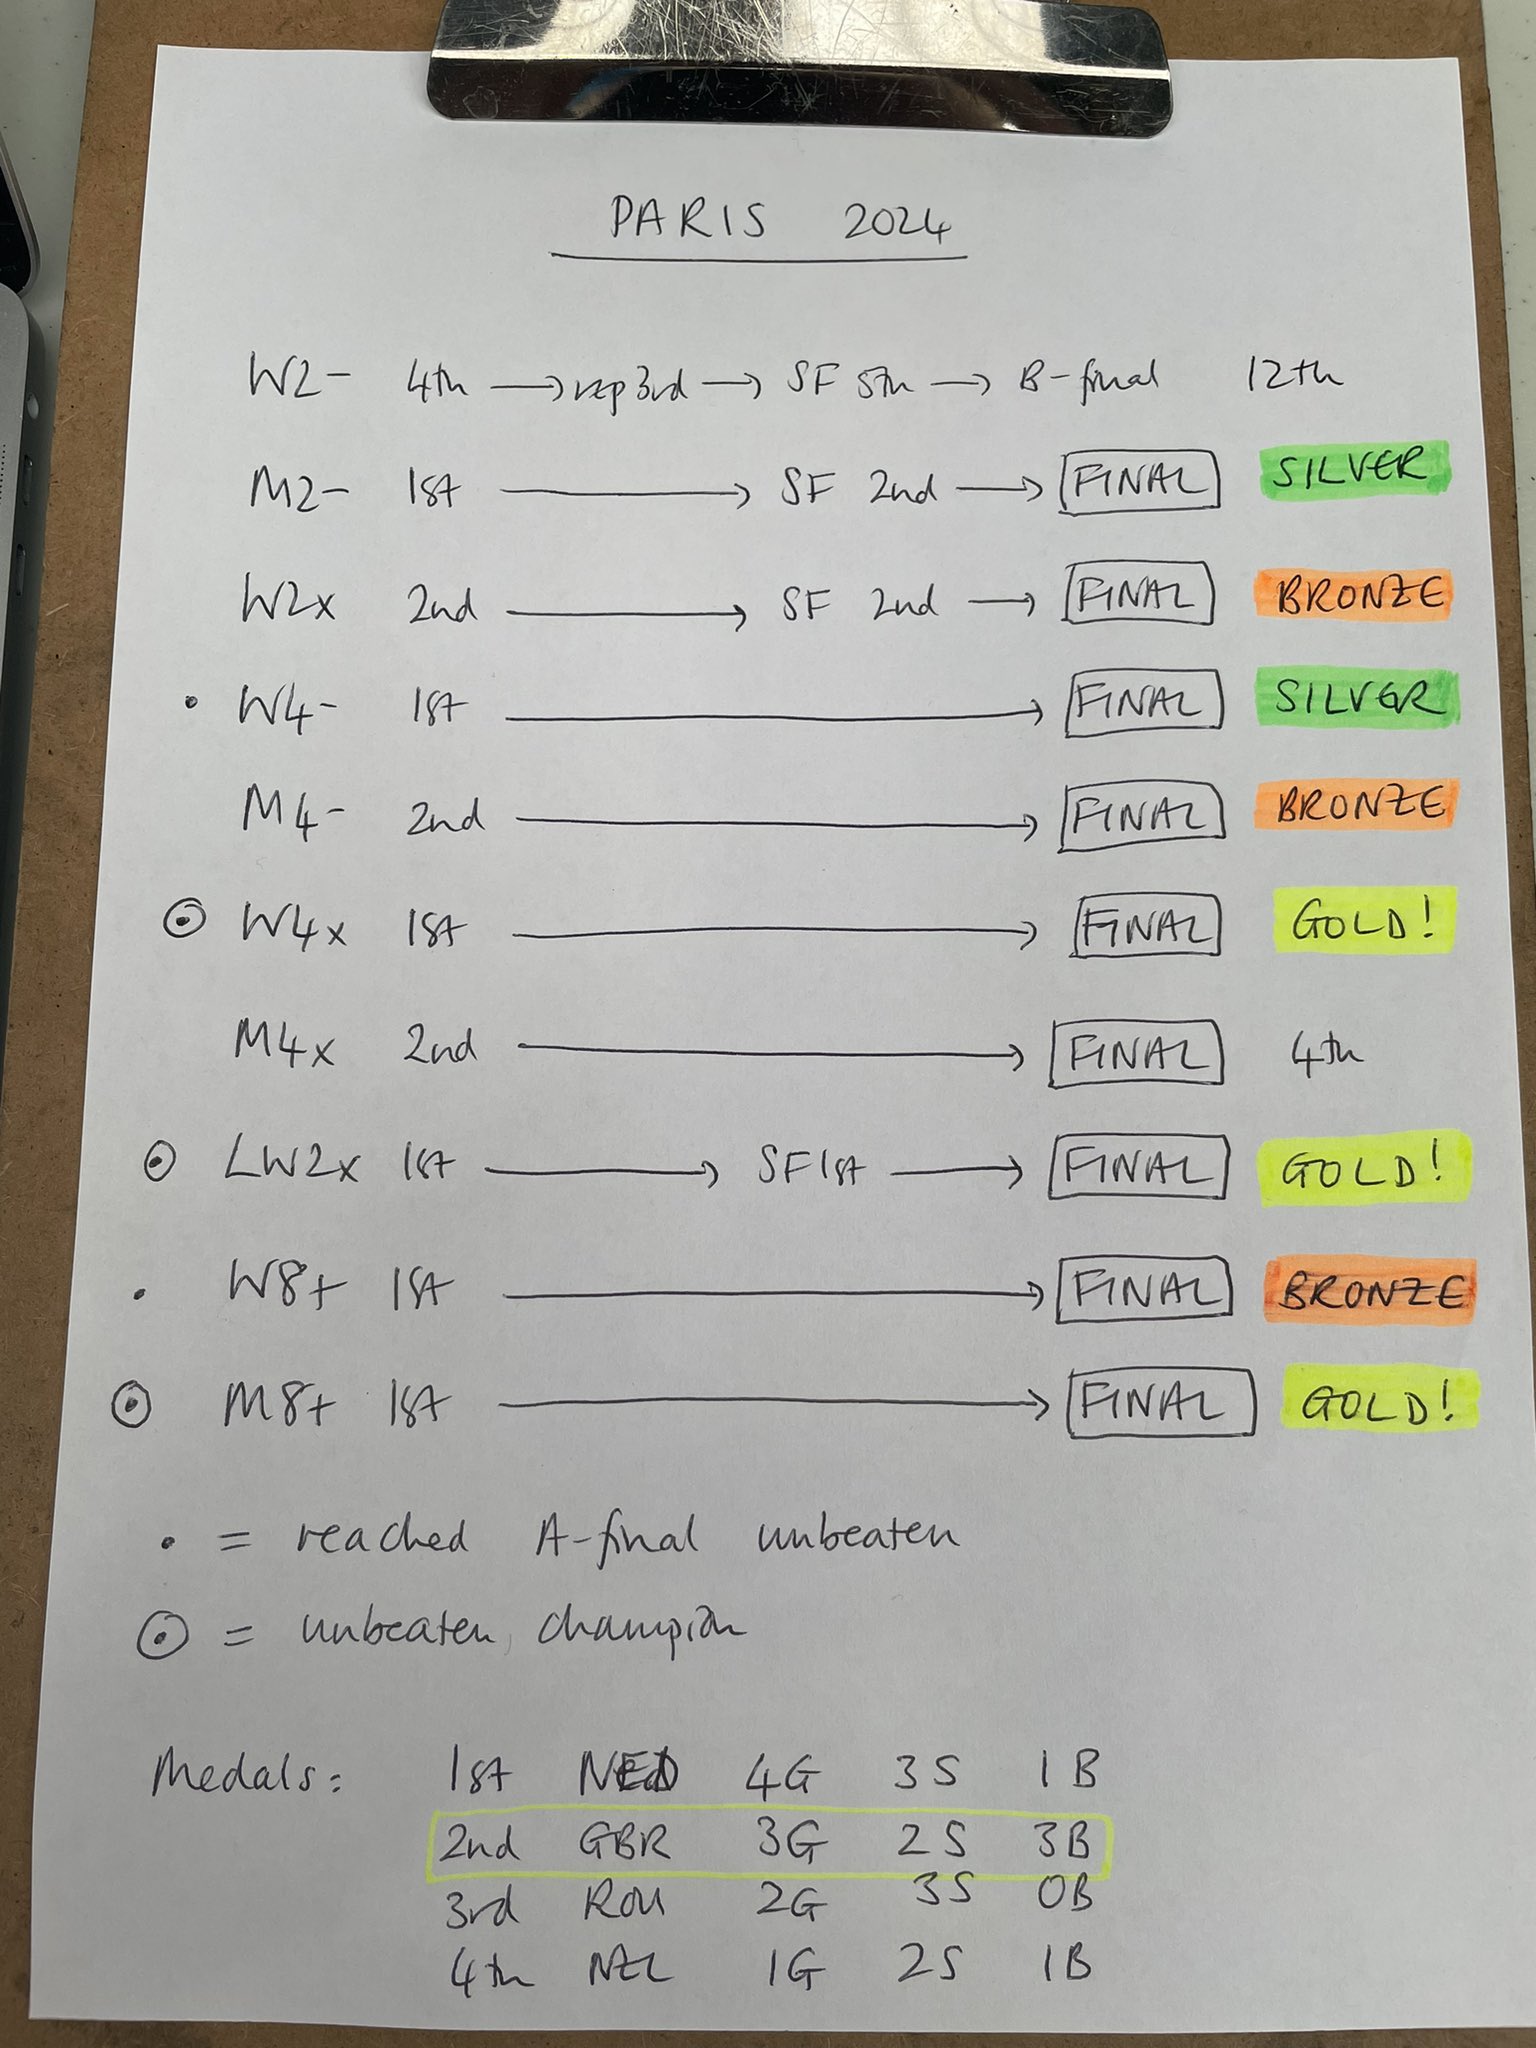 PARIS 2024
W2- 4th → rep 3rd → SF 5th → B-final 12th
M2- 1st → SF 2nd → FINAL SILVER
W2x 2nd → SF 2nd → FINAL BRONZE
• W4- 1st → FINAL SILVER
M4- 2nd → FINAL BRONZE
⊙ W4x 1st → FINAL GOLD!
M4x 2nd → FINAL 4th
⊙ LW2x 1st → SF 1st → FINAL GOLD!
• W8+ 1st → FINAL BRONZE
⊙ M8+ 1st → FINAL GOLD!
• = reached A-final unbeaten
⊙ = unbeaten champion
Medals: 1st NED 4G 3S 1B
2nd GBR 3G 2S 3B
3rd ROU 2G 3S 0B
4th NZL 1G 2S 1B